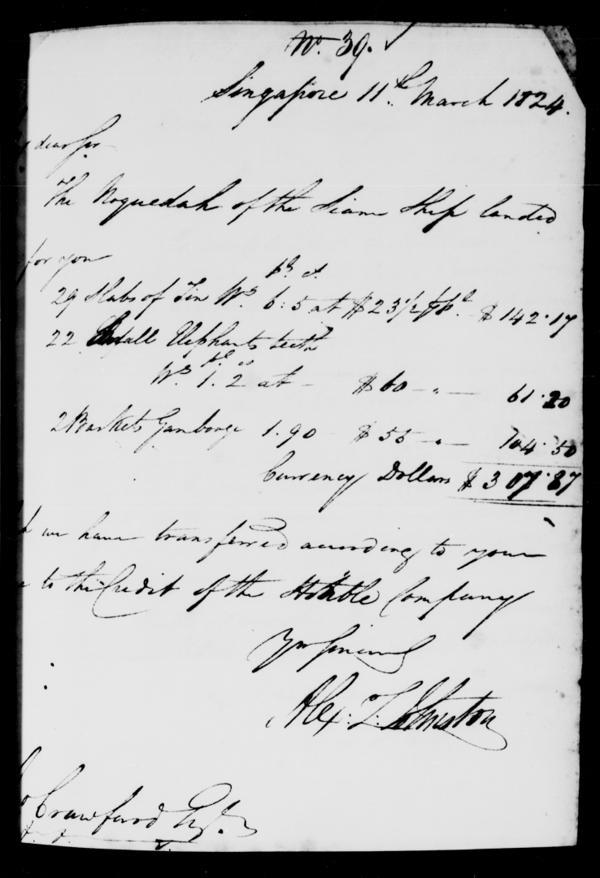 No. 39.
Singapore 11th March 1824.
dear Sir
The Noquedah of the Siam Ship landed
for you
29 Slabs of Tin Wg. 6.5 at $23½ $142.17
22 Small Elephants teeth
Wg. 1.2 at $60 61.20
2 Baskets Gamboge 1.90 $55 104.50
Currency Dollars $307.87
we have transferred according to your
to the Credit of the Honble Company
Yrs Sincerely
Alex. L. Johnston
Crawfurd Esqr.